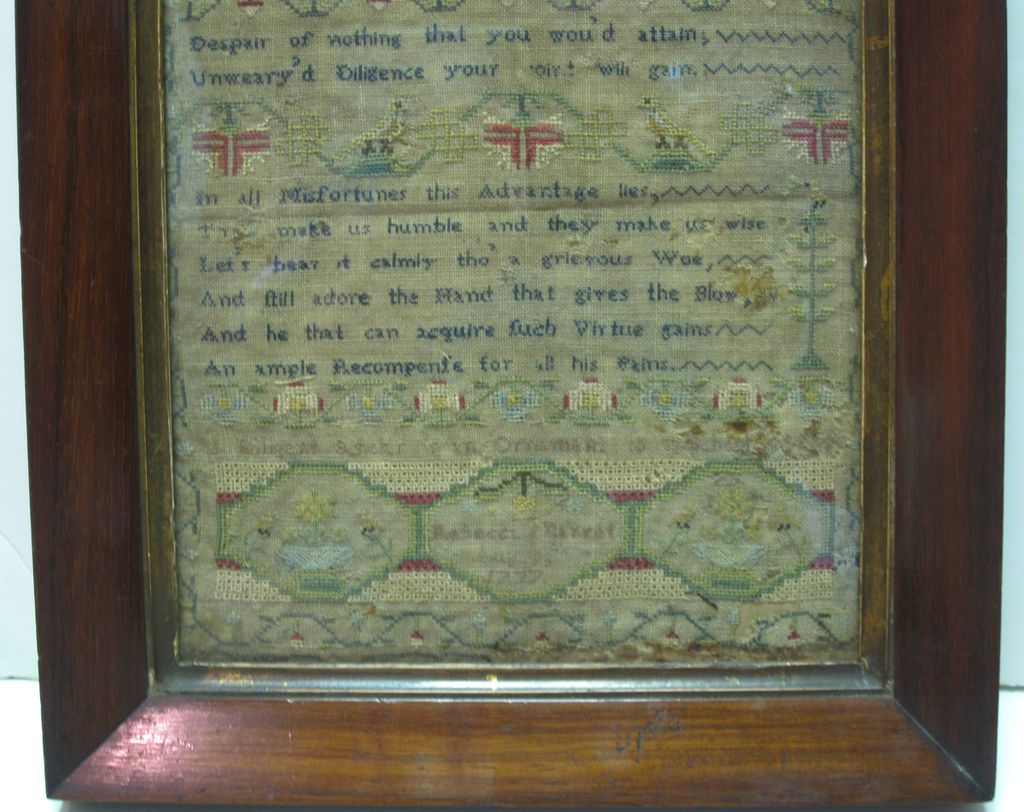 Despair of nothing that you wou'd attain,
Unweary'd Diligence your point will gain.
In all Misfortunes this Advantage lies,
They make us humble and they make us wise
Let's bear it calmly tho' a grievous Woe,
And still adore the Hand that gives the Blow,
And he that can acquire such Virtue gains
An ample Recompense for all his Pains.
Diligent Scholar is an Ornament to
Rebecca